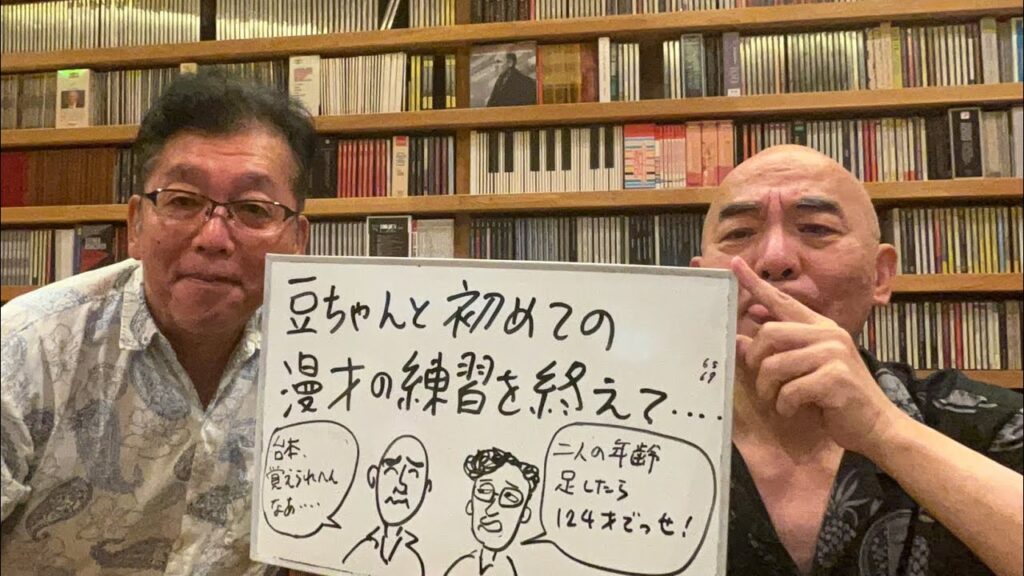 豆ちゃんと初めての
漫才の練習を終えて‥‥
台本、
覚えられへん
なあ‥‥
二人の年齢
足したら
124才でっせ!